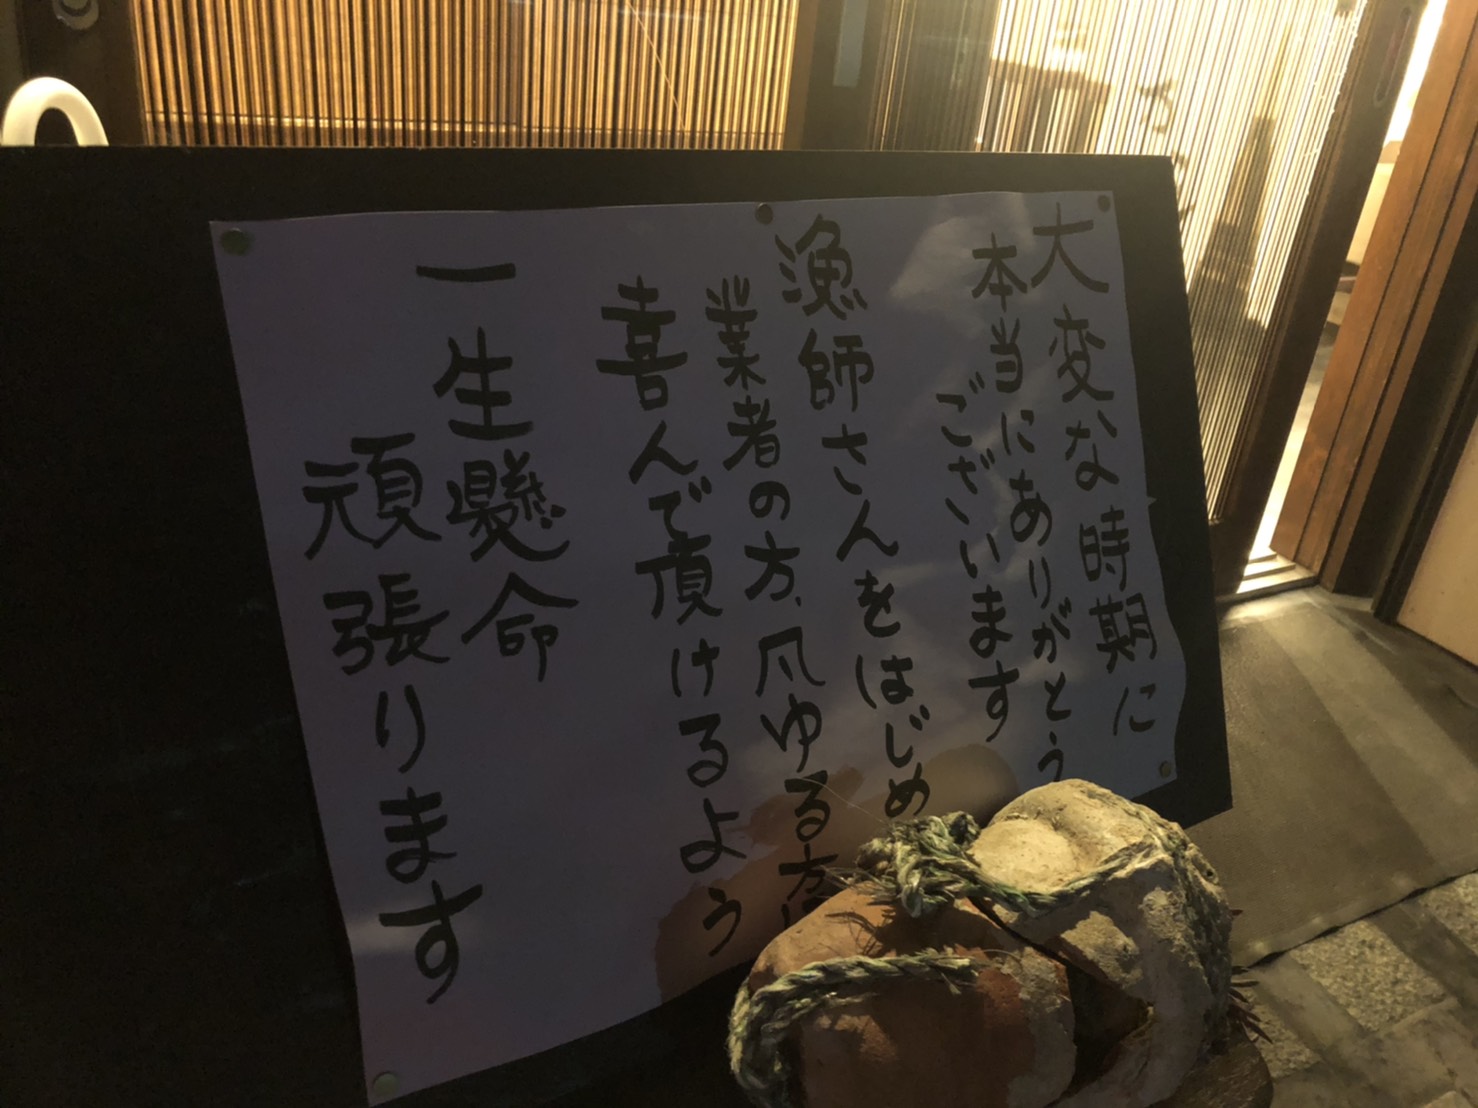 大変な時期に
本当にありがとう
ございます
漁師さんをはじめ
業者の方、凡ゆる方に
喜んで頂けるよう
一生懸命
頑張ります